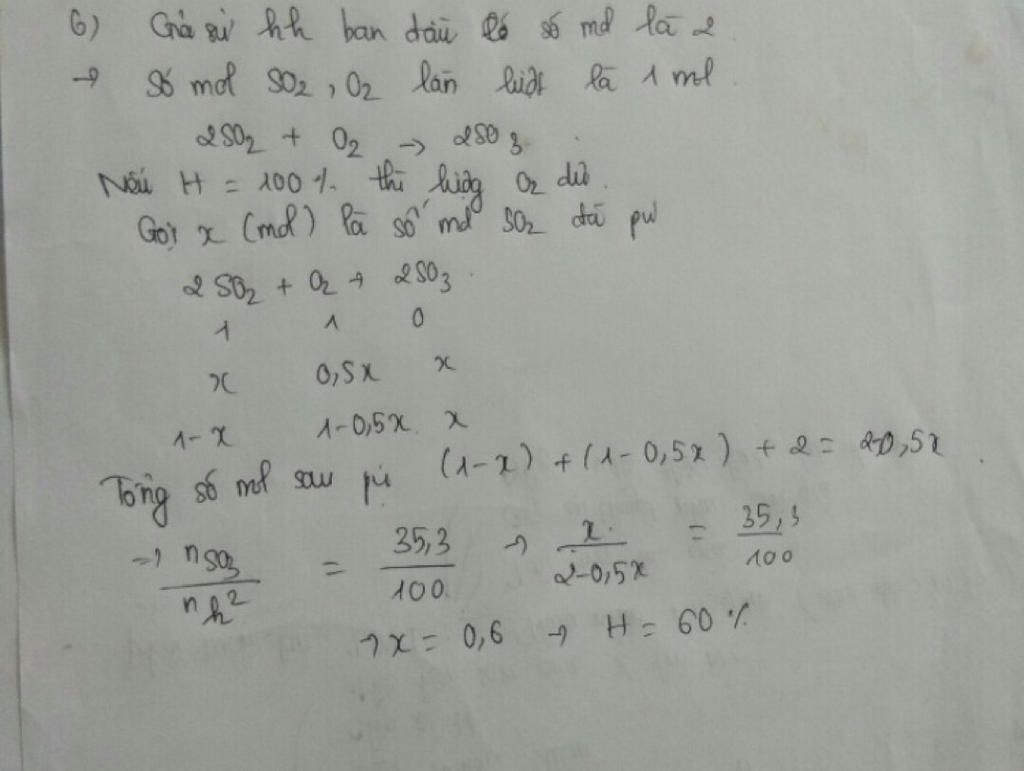 6) Giả sử hh ban đầu có số mol là 2.
→ Số mol SO2, O2 lần lượt là 1 mol.
2SO2 + O2 → 2SO3.
Nếu H = 100% thì lượng O2 dư.
Gọi x (mol) là số mol SO2 đã pư
2SO2 + O2 → 2SO3.
1 1 0
x 0,5x x
1-x 1-0,5x x
Tổng số mol sau pư (1-x) + (1-0,5x) + 2 = 2-0,5x.
→ nSO3 / nh2 = 35,3 / 100 → x / 2-0,5x = 35,3 / 100
→ x = 0,6 → H = 60%